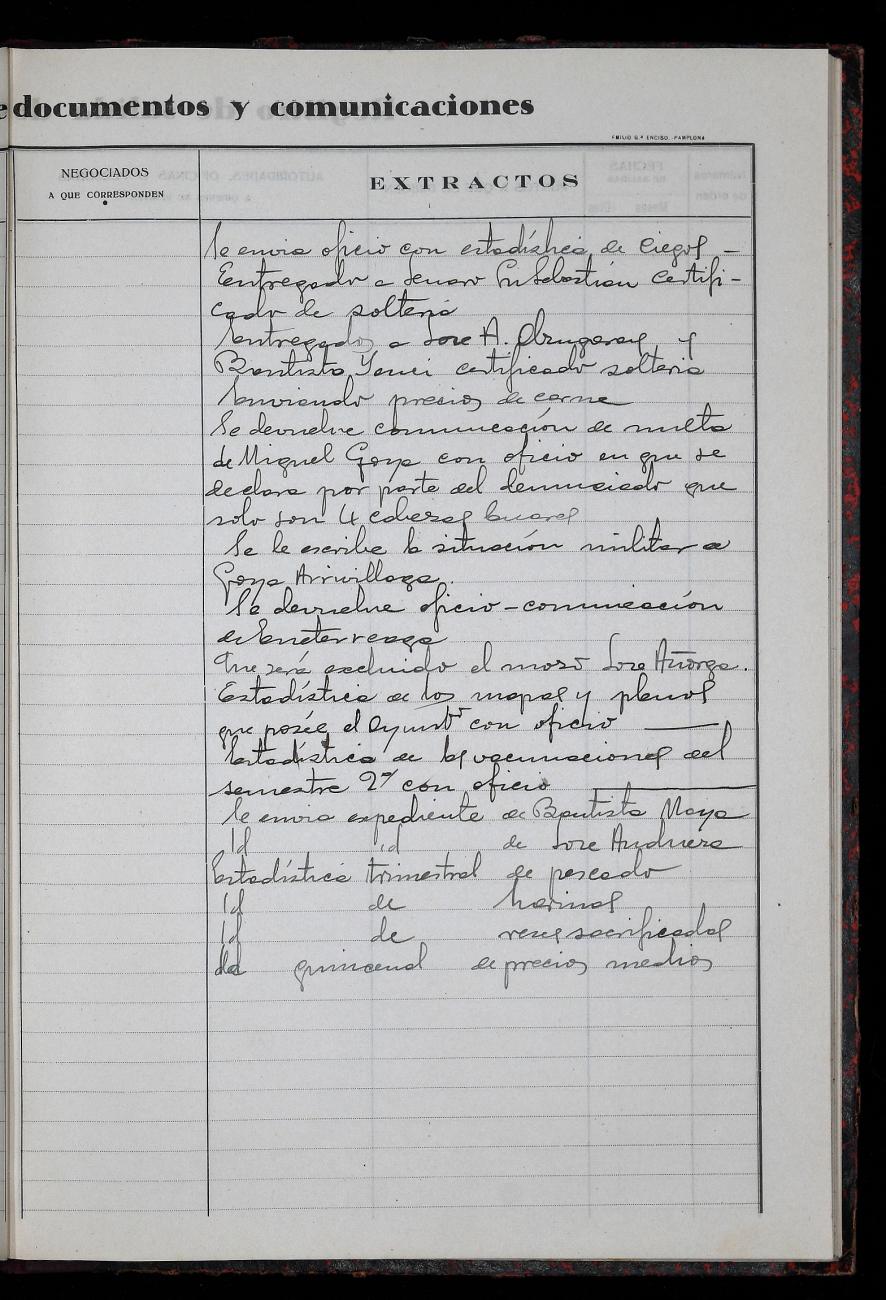 e documentos y comunicaciones
EMILIO G.ª ENCISO.-PAMPLONA
NEGOCIADOS
A QUE CORRESPONDEN
EXTRACTOS
Se envia oficio con estadística de Ciegos -
Entregado a Sebastián Certifi-
cado de solteria
Entregados a Jose A. y
Bautista certificado solteria
Enviando precios de carne
Se devuelve comunicación de multa
de Miguel Goya con oficio en que se
declara por parte del denunciado que
solo son 4 cabezas
Se le escribe la situación militar a
Goya Arrivillaga.
Se devuelve oficio-comunicación
de
Que será excluido el mozo Jose Añorga.
Estadística de los mapas y planos
que posée el Ayuntº con oficio
Estadística de las vacunaciones del
semestre 2º con oficio
Se envia expediente de Bautista Maya
Id id de Jose Andueza
Estadística trimestral de pescado
Id de harinas
Id de reses sacrificadas
Id quincenal de precios medios